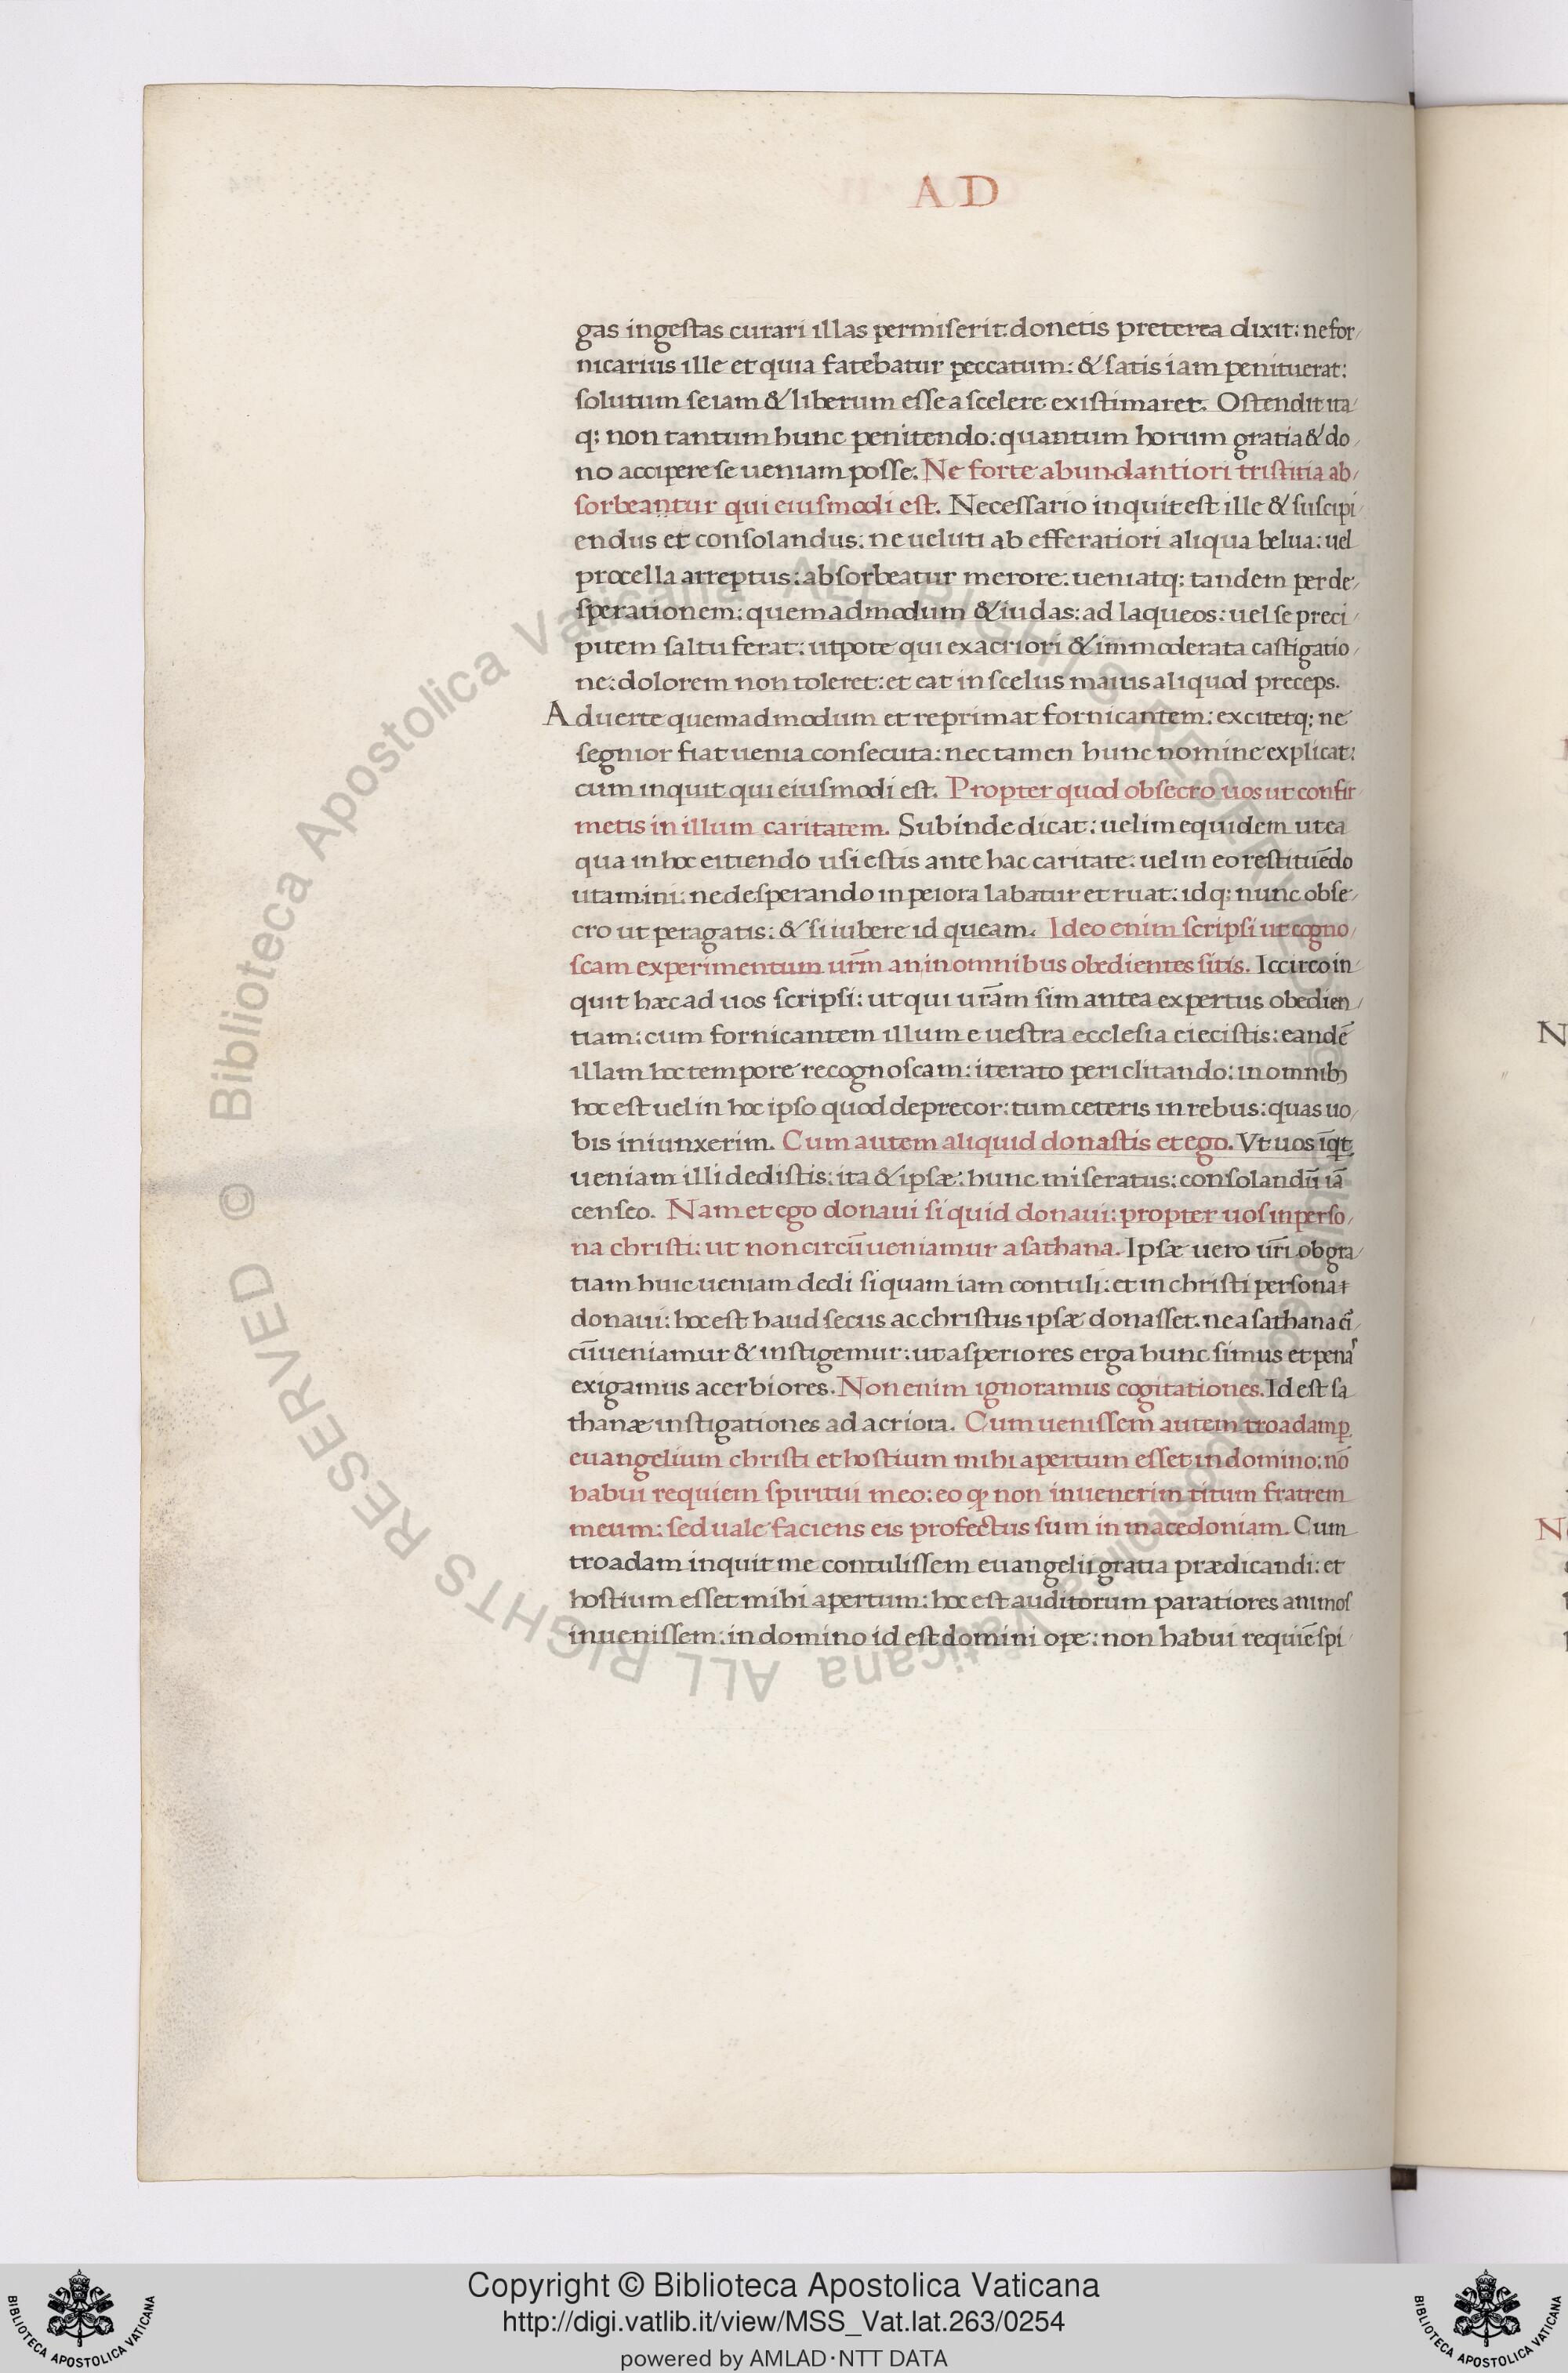 A D
gas ingestas curari illas permiserit. donetis preterea dixit: ne for/
nicarius ille et quia fatebatur peccatum: & satis iam penituerat:
solutum se iam & liberum esse a scelere existimaret. Ostendit ita/
q; non tantum hunc penitendo: quantum horum gratia & do/
no accipere se ueniam posse. Ne forte abundantiori tristitia ab/
sorbeantur qui eiusmodi est. Necessario inquit est ille & suscipi/
endus et consolandus: ne ueluti ab efferatiori aliqua belua: uel
procella arreptus: absorbeatur merore: ueniatq; tandem per de/
sperationem: quemadmodum & iudas: ad laqueos: uel se preci/
pitem saltu ferat: utpote qui ex acriori & immoderata castigatio/
ne: dolorem non toleret: et eat in scelus maius aliquod preceps.
Aduerte quemadmodum et reprimat fornicantem: excitetq; ne
segnior fiat uenia consecuta: nec tamen hunc nomine explicat:
cum inquit qui eiusmodi est. Propter quod obsecro uos ut confir/
metis in illum caritatem. Subinde dicat: uelim equidem ut ea
qua in hoc eitiendo usi estis ante hac caritate: uel in eo restituēdo
utamini: ne desperando in peiora labatur et ruat: idq; nunc obse/
cro ut peragatis: & si iubere id queam. Ideo enim scripsi ut cogno/
scam experimentum ur̄m an in omnibus obedientes sitis. Iccirco in
quit hæc ad uos scripsi: ut qui ur̄am sim antea expertus obedien/
tiam: cum fornicantem illum e uestra ecclesia eiecistis: eandē
illam hoc tempore recognoscam: iterato periclitando: in omnibꝰ
hoc est uel in hoc ipso quod deprecor: tum ceteris in rebus: quas uo/
bis iniunxerim. Cum autem aliquid donastis et ego. Vt uos īqt
ueniam illi dedistis: ita & ipsæ: hunc miseratus: consolandū iā
censeo. Nam et ego donaui si quid donaui: propter uos in perso/
na christi: ut non circūueniamur a sathana. Ipsæ uero ur̄i ob gra/
tiam huic ueniam dedi si quam iam contuli: et in christi persona
donaui: hoc est haud secus ac christus ipsæ donasset. ne a sathana cī/
cūueniamur & instigemur: ut asperiores erga hunc simus et penā
exigamus acerbiores. Non enim ignoramus cogitationes. Id est sa
thanæ instigationes ad acriora. Cum uenissem autem troadam ꝑ
euangelium christi et hostium mihi apertum esset in domino: nō
habui requiem spiritui meo: eo ꝙ non inuenerim titum fratrem
meum: sed uale faciens eis profectus sum in macedoniam. Cum
troadam inquit me contulissem euangelii gratia prædicandi: et
hostium esset mihi apertum: hoc est auditorum paratiores animos
inuenissem: in domino id est domini ope: non habui requiē spi
© Biblioteca Apostolica Vaticana ALL RIGHTS RESERVED
© Biblioteca Apostolica Vaticana ALL RIGHTS RESERVED
N
N
Copyright © Biblioteca Apostolica Vaticana
http://digi.vatlib.it/view/MSS_Vat.lat.263/0254
powered by AMLAD·NTT DATA
BIBLIOTECA APOSTOLICA VATICANA
BIBLIOTECA APOSTOLICA VATICANA